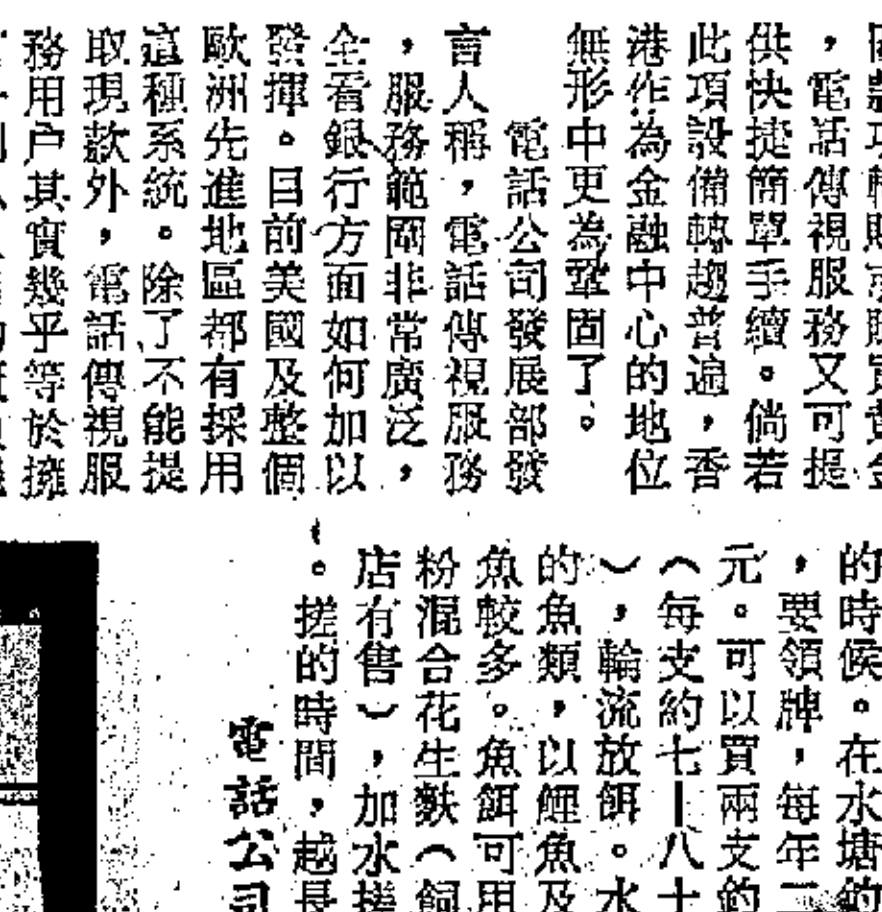 ，電話傳視服務又可提
供快捷簡單手續。倘若
此項設備轉趨普遍，香
港作為金融中心的地位
無形中更為鞏固了。
電話公司發展部發
言人稱，電話傳視服務
，服務範圍非常廣泛，
全看銀行方面如何加以
發揮。目前美國及整個
歐洲先進地區都有採用
這種系統。除了不能提
取現款外，電話傳視服
務用户其實幾乎等於擁
的時候。在水塘釣
，要領牌，每年二
元。可以買兩支釣
（每支約七－八十
），輪流放餌。水
的魚類，以鯉魚及
魚較多。魚餌可用
粉混合花生麩（飼
店有售），加水搓
。搓的時間，越長
電話公司